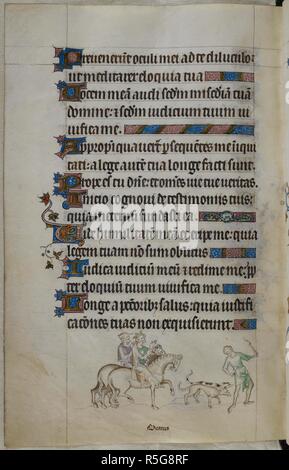 Preuenerunt oculi mei ad te diluculo:
ut meditarer eloquia tua
Uocem meā audi scdm miscdiā tuā
domine: ⁊ scdm iudicium tuum ui
uifica me.
Appropiquauerūt psequētes me iniqui
tati: a lege autē tua longe facti sunt.
Prope es tu dn̄e: ⁊ omēs uie tue ueritas.
Inicio cognoui de testimoniis tuis:
quia in eternum fundasti ea.
Uide humilitatē meā ⁊ eripe me: quia
legem tuam nō sum oblitus
Iudica iudiciū meū ⁊ redime me: ppt
eloquiū tuum uiuifica me.
Longe a pctōrib; salus: quia iustifi
cacōnes tuas non exquisierunt.
alamy - R5G8RF